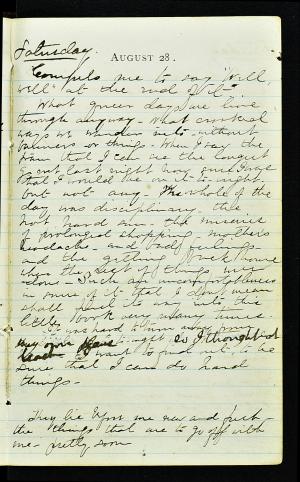 Saturday.
AUGUST 28.
Compels me to say "Well,
well" at the end of it.
What queer days we live
through anyway. What
ways we wander into without
banners or things. When I say the
that I can see the longest
last night
that I would be to-night
but not any. The whole of the
day was disciplinary, the
hot hard sun, the miseries
of prolonged shopping, mothers
headache, and bad feelings
and the getting back home
when the rest of things were
done. Such an uncomfortableness
in some of it that I don't mean
shall find its way into this
little book very many times.
It was hard to turn away from
my own to-night, so I thought
I want to to be
sure that I can do hard
things.
They lie before me new and fresh
the things that are to go off with
me pretty soon